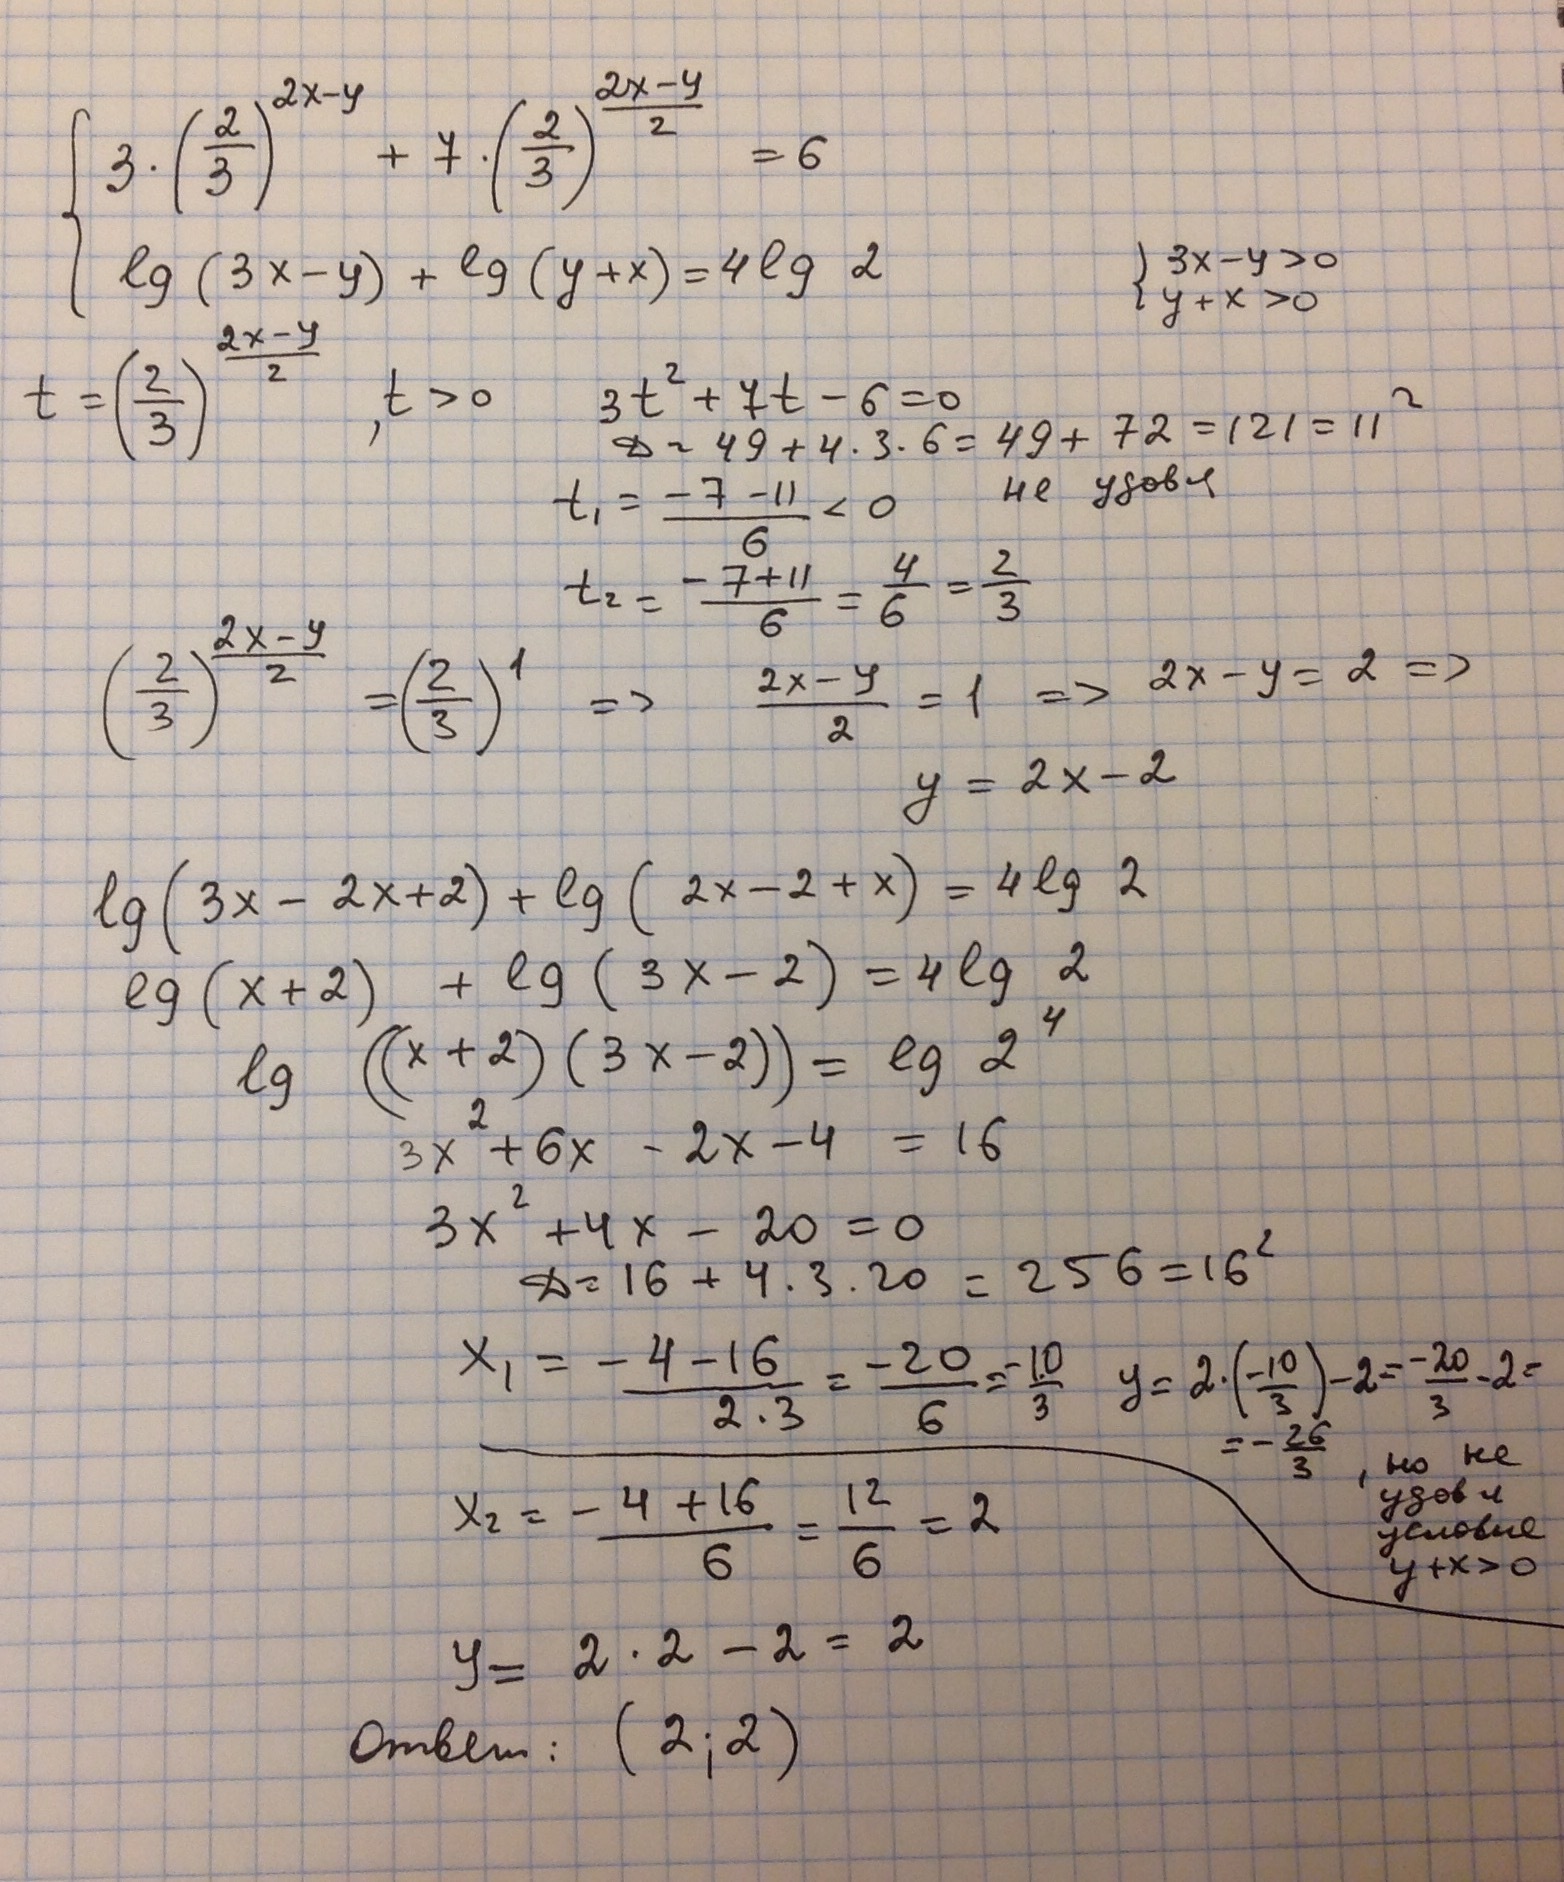 { 3·(2/3)^(2x-y) + 7·(2/3)^((2x-y)/2) = 6
lg(3x-y) + lg(y+x) = 4lg 2
{ 3x-y>0
y+x>0
t = (2/3)^((2x-y)/2), t>0
3t² + 7t - 6 = 0
D = 49 + 4·3·6 = 49 + 72 = 121 = 11²
t₁ = (-7-11)/6 < 0 не удовл
t₂ = (-7+11)/6 = 4/6 = 2/3
(2/3)^((2x-y)/2) = (2/3)^1 => (2x-y)/2 = 1 => 2x-y = 2 =>
y = 2x-2
lg(3x-2x+2) + lg(2x-2+x) = 4lg 2
lg(x+2) + lg(3x-2) = 4lg 2
lg((x+2)(3x-2)) = lg 2⁴
3x² + 6x - 2x - 4 = 16
3x² + 4x - 20 = 0
D = 16 + 4·3·20 = 256 = 16²
x₁ = (-4-16)/(2·3) = -20/6 = -10/3 y = 2·(-10/3) - 2 = -20/3 - 2 =
= -26/3, но не
удовл
условие
y+x>0
x₂ = (-4+16)/6 = 12/6 = 2
y = 2·2 - 2 = 2
Ответ: (2;2)